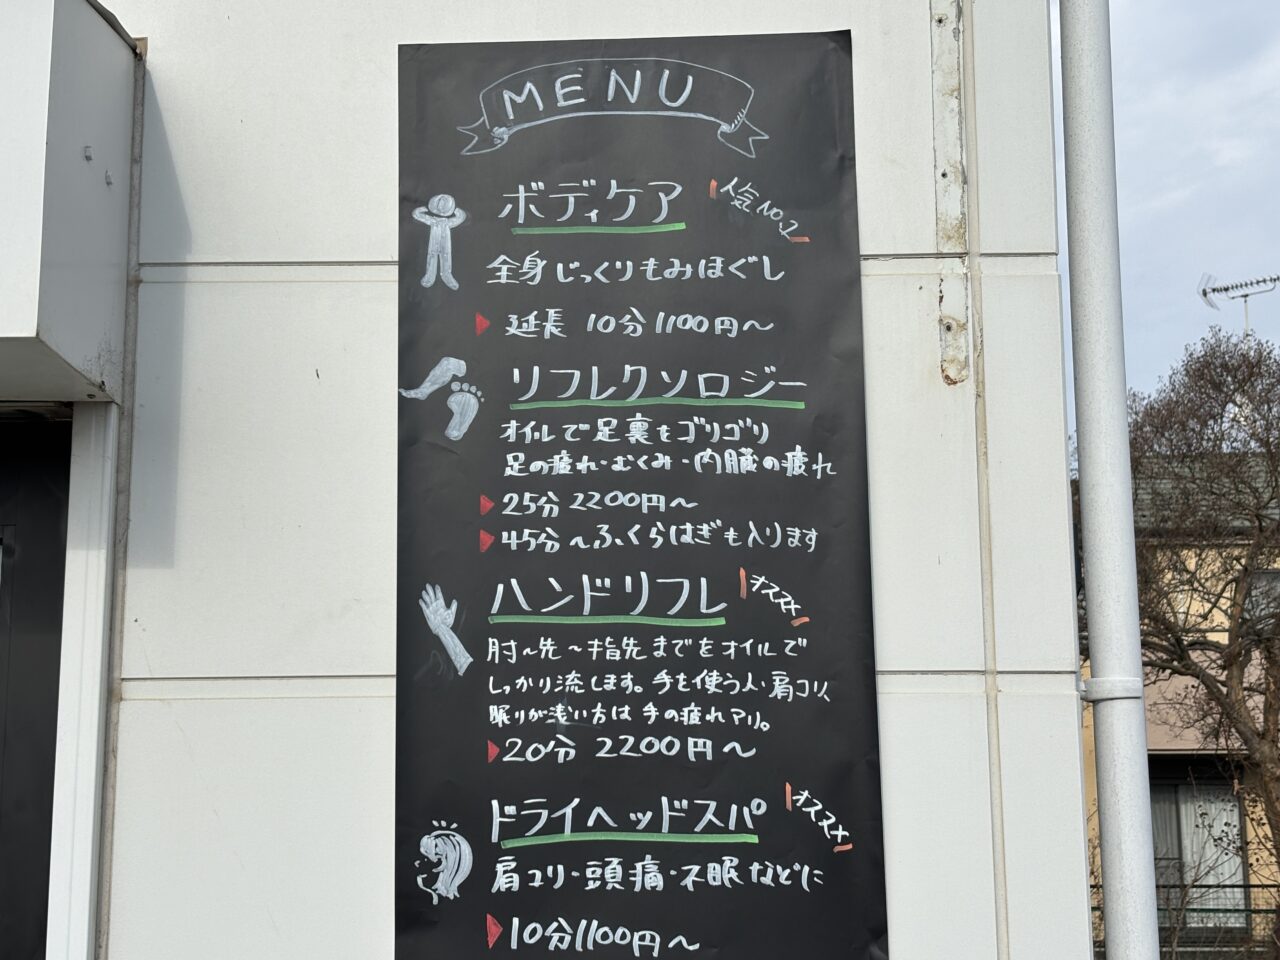 MENU
ボディケア
人気NO.2
全身じっくりもみほぐし
延長 10分1100円〜
リフレクソロジー
オイルで足裏をゴリゴリ
足の疲れ・むくみ・内臓の疲れ
25分2200円〜
45分〜ふくらはぎも入ります
ハンドリフレ
オススメ
肘〜先〜指先までをオイルで
しっかり流します。手を使う人・肩コリ、
眠りが浅い方は手の疲れアリ。
20分 2200円〜
ドライヘッドスパ
オススメ
肩コリ・頭痛・不眠などに
10分1100円〜